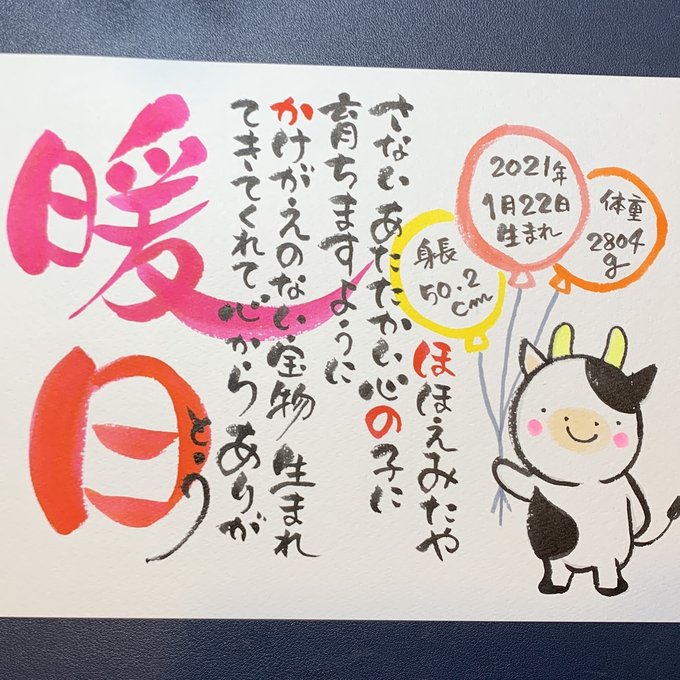 2021年
1月22日
生まれ
体重
2804
g
身長
50.2
cm
ほほえみたや
さない あたたかい心の子に
育ちますように
かけがえのない宝物 生まれ
てきてくれて 心から ありが
とう
暖日